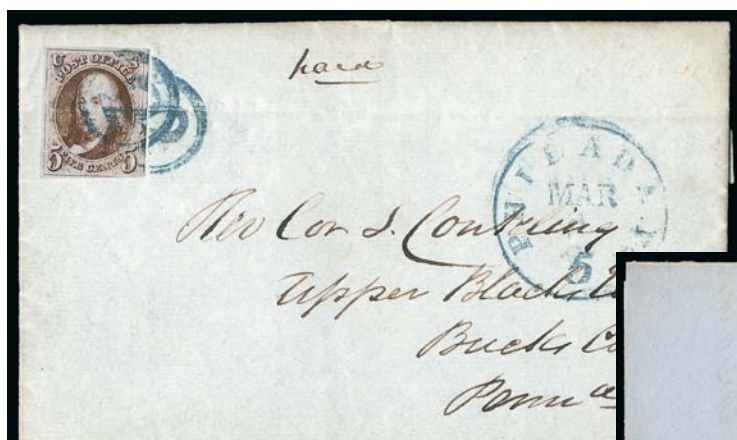 POST OFFICE
FIVE CENTS
5 5
paid
PHILADA
MAR
5
Rev Cor. S. Conkling
Upper Black
Bucks Co
Penn a